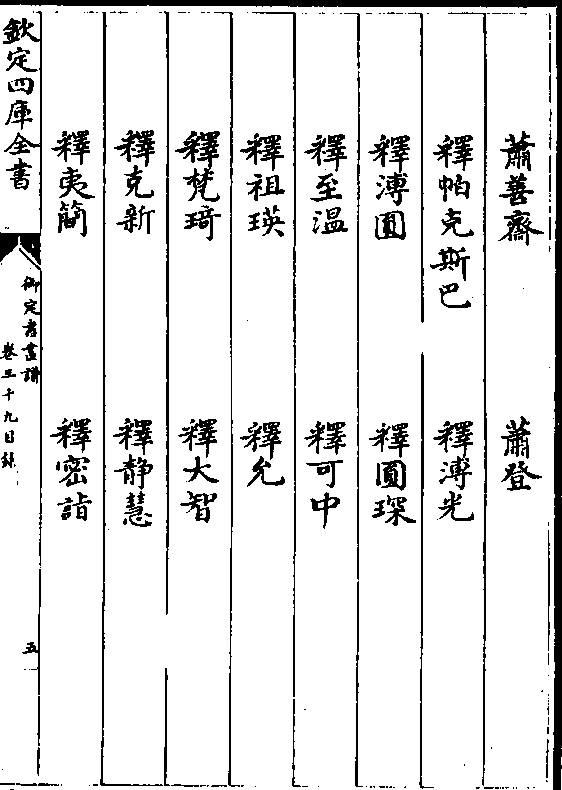 蕭善齋　蕭登
釋帕克斯巴　釋溥光
釋溥圓　釋圓琛
釋至温　釋可中
釋祖瑛　釋允
釋梵琦　釋大智
釋克新　釋静慧
釋夷簡　釋密詣
欽定四庫全書
御定書畫譜
卷三十九目錄
五